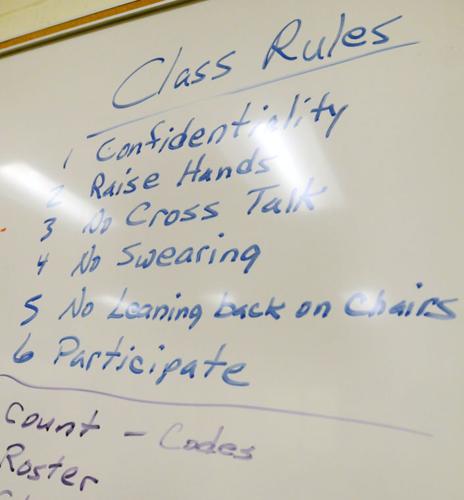 Class Rules
1 Confidentiality
2 Raise Hands
3 No Cross Talk
4 No Swearing
5 No Leaning back on Chairs
6 Participate
Count - Codes
Roster